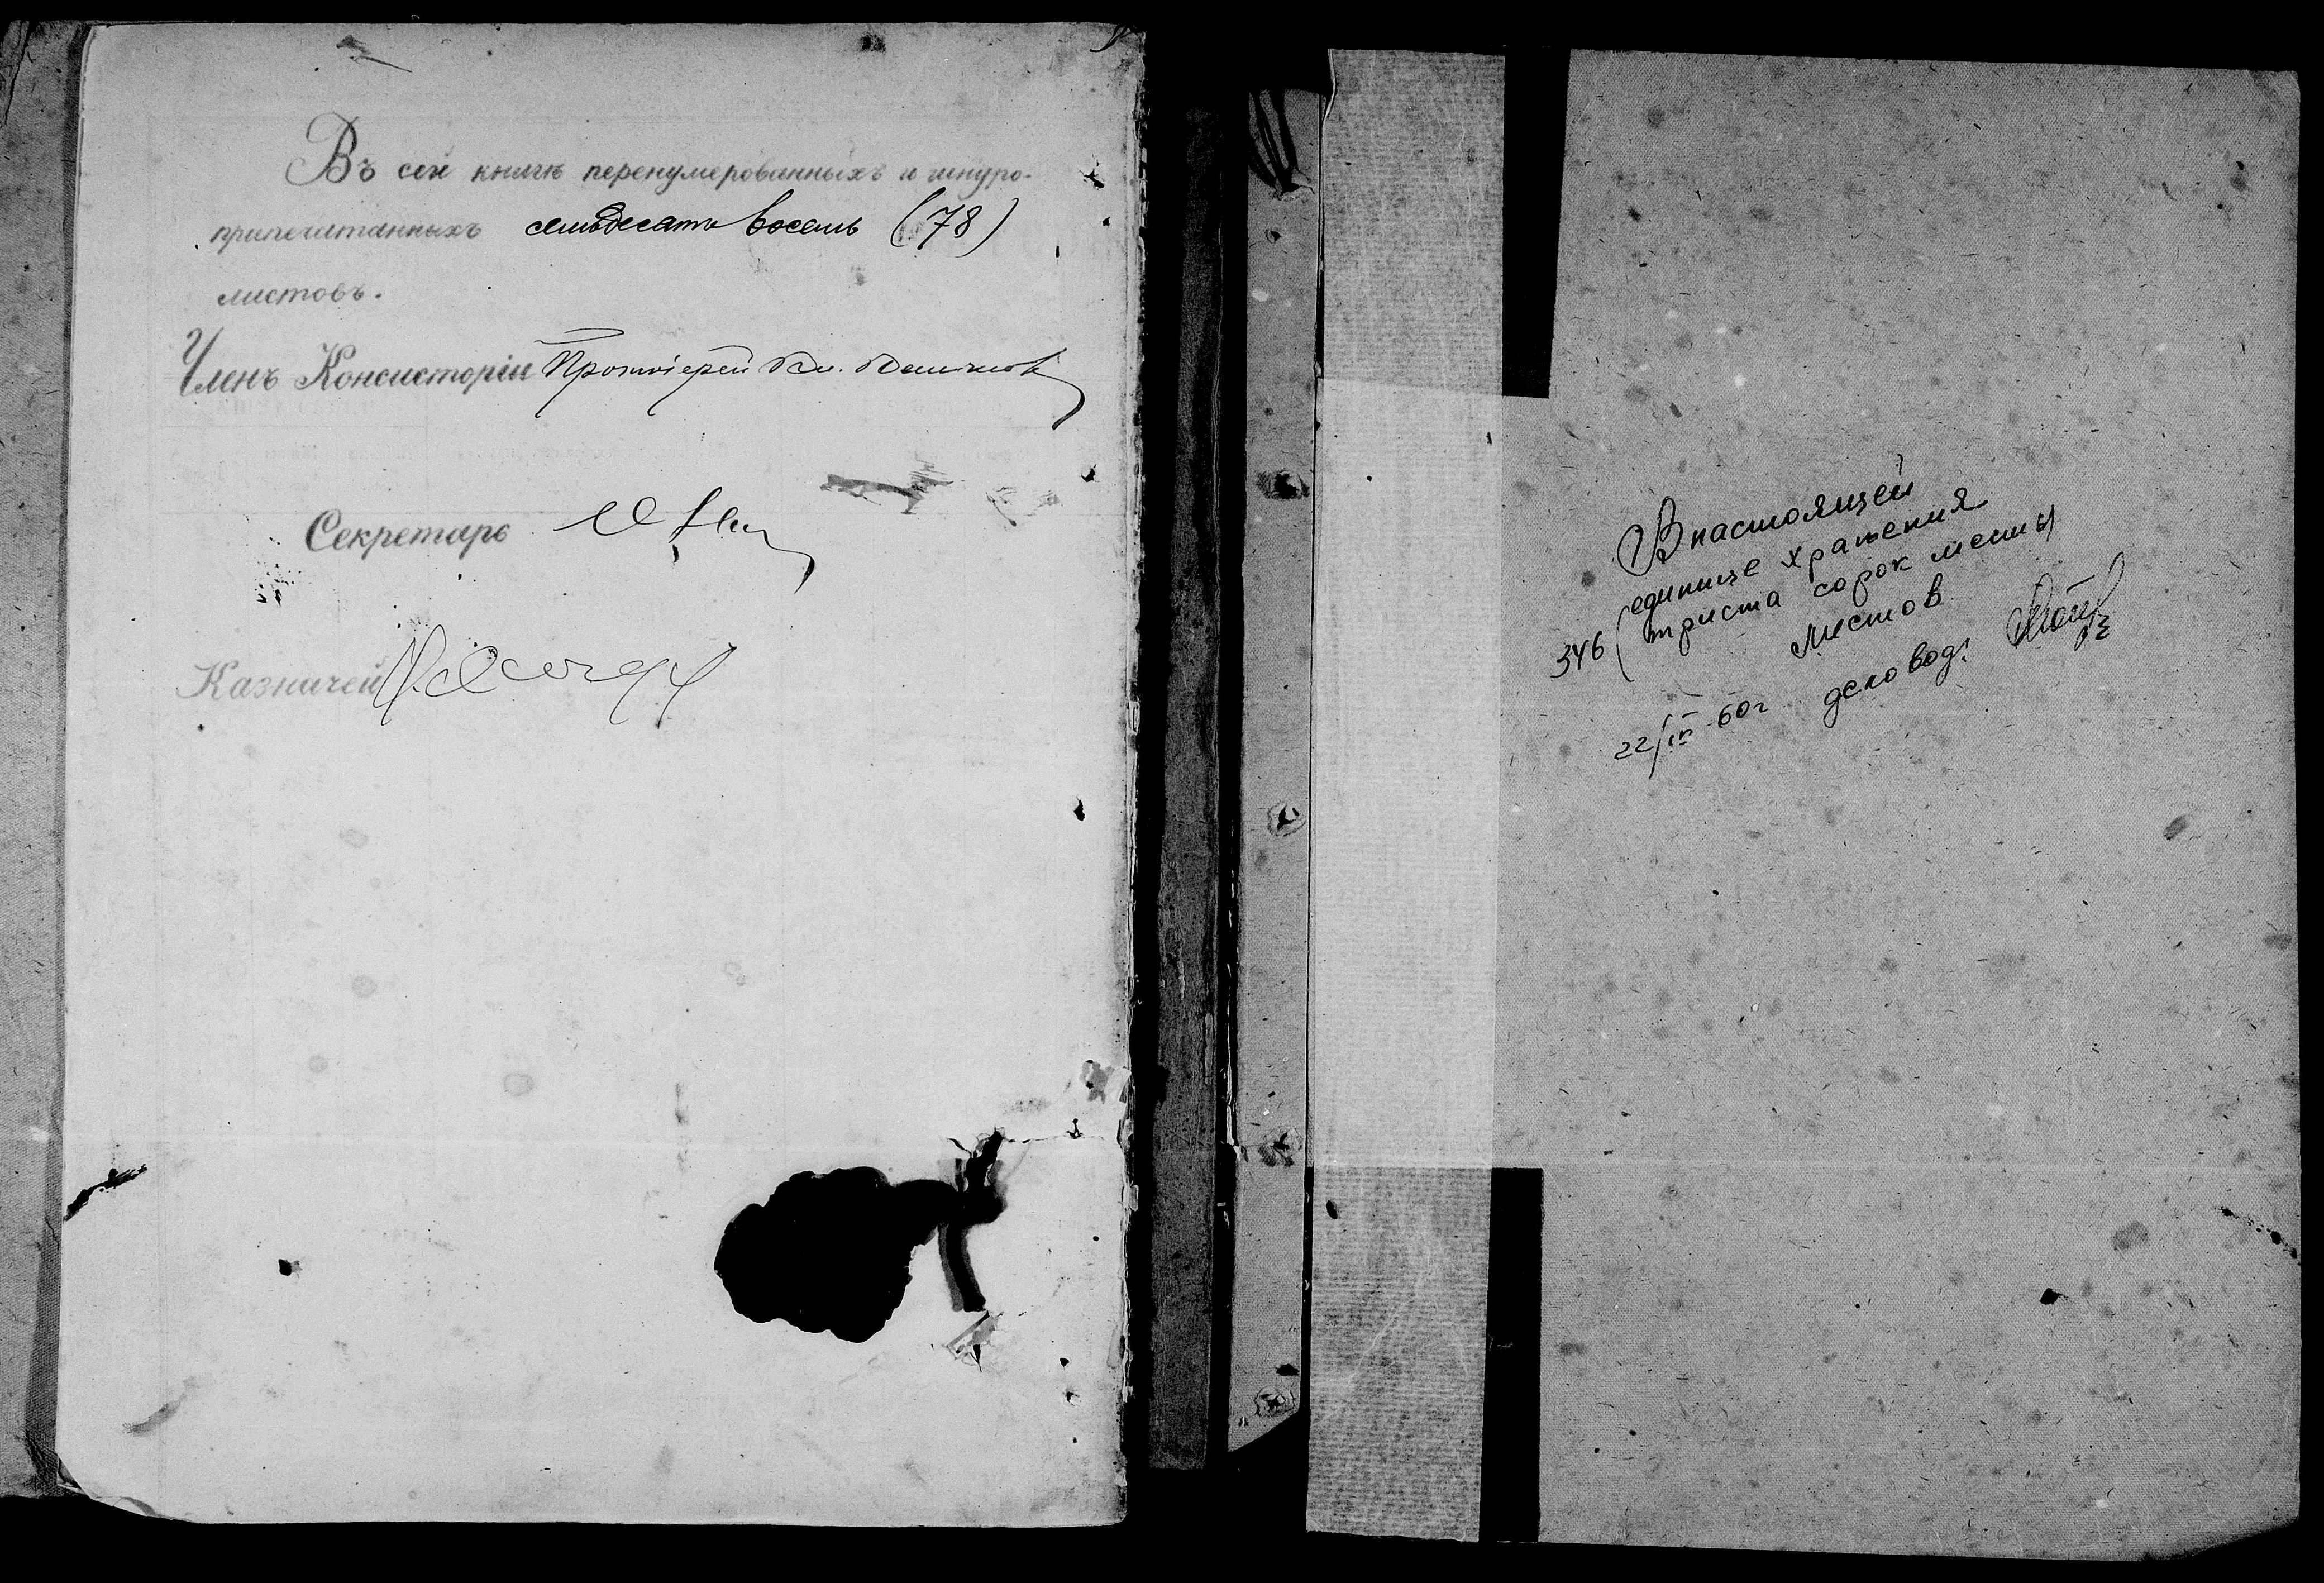 Въ сей книгѣ перенумерованныхъ и шнуро-
припечатанныхъ семьдесятъ восемь (78)
листовъ.
Членъ Консисторіи Протоіерей
Секретарь
Казначей
В настоящей
единице хранения
346 (триста сорок шесть)
листов
22/IV-60г деловод: